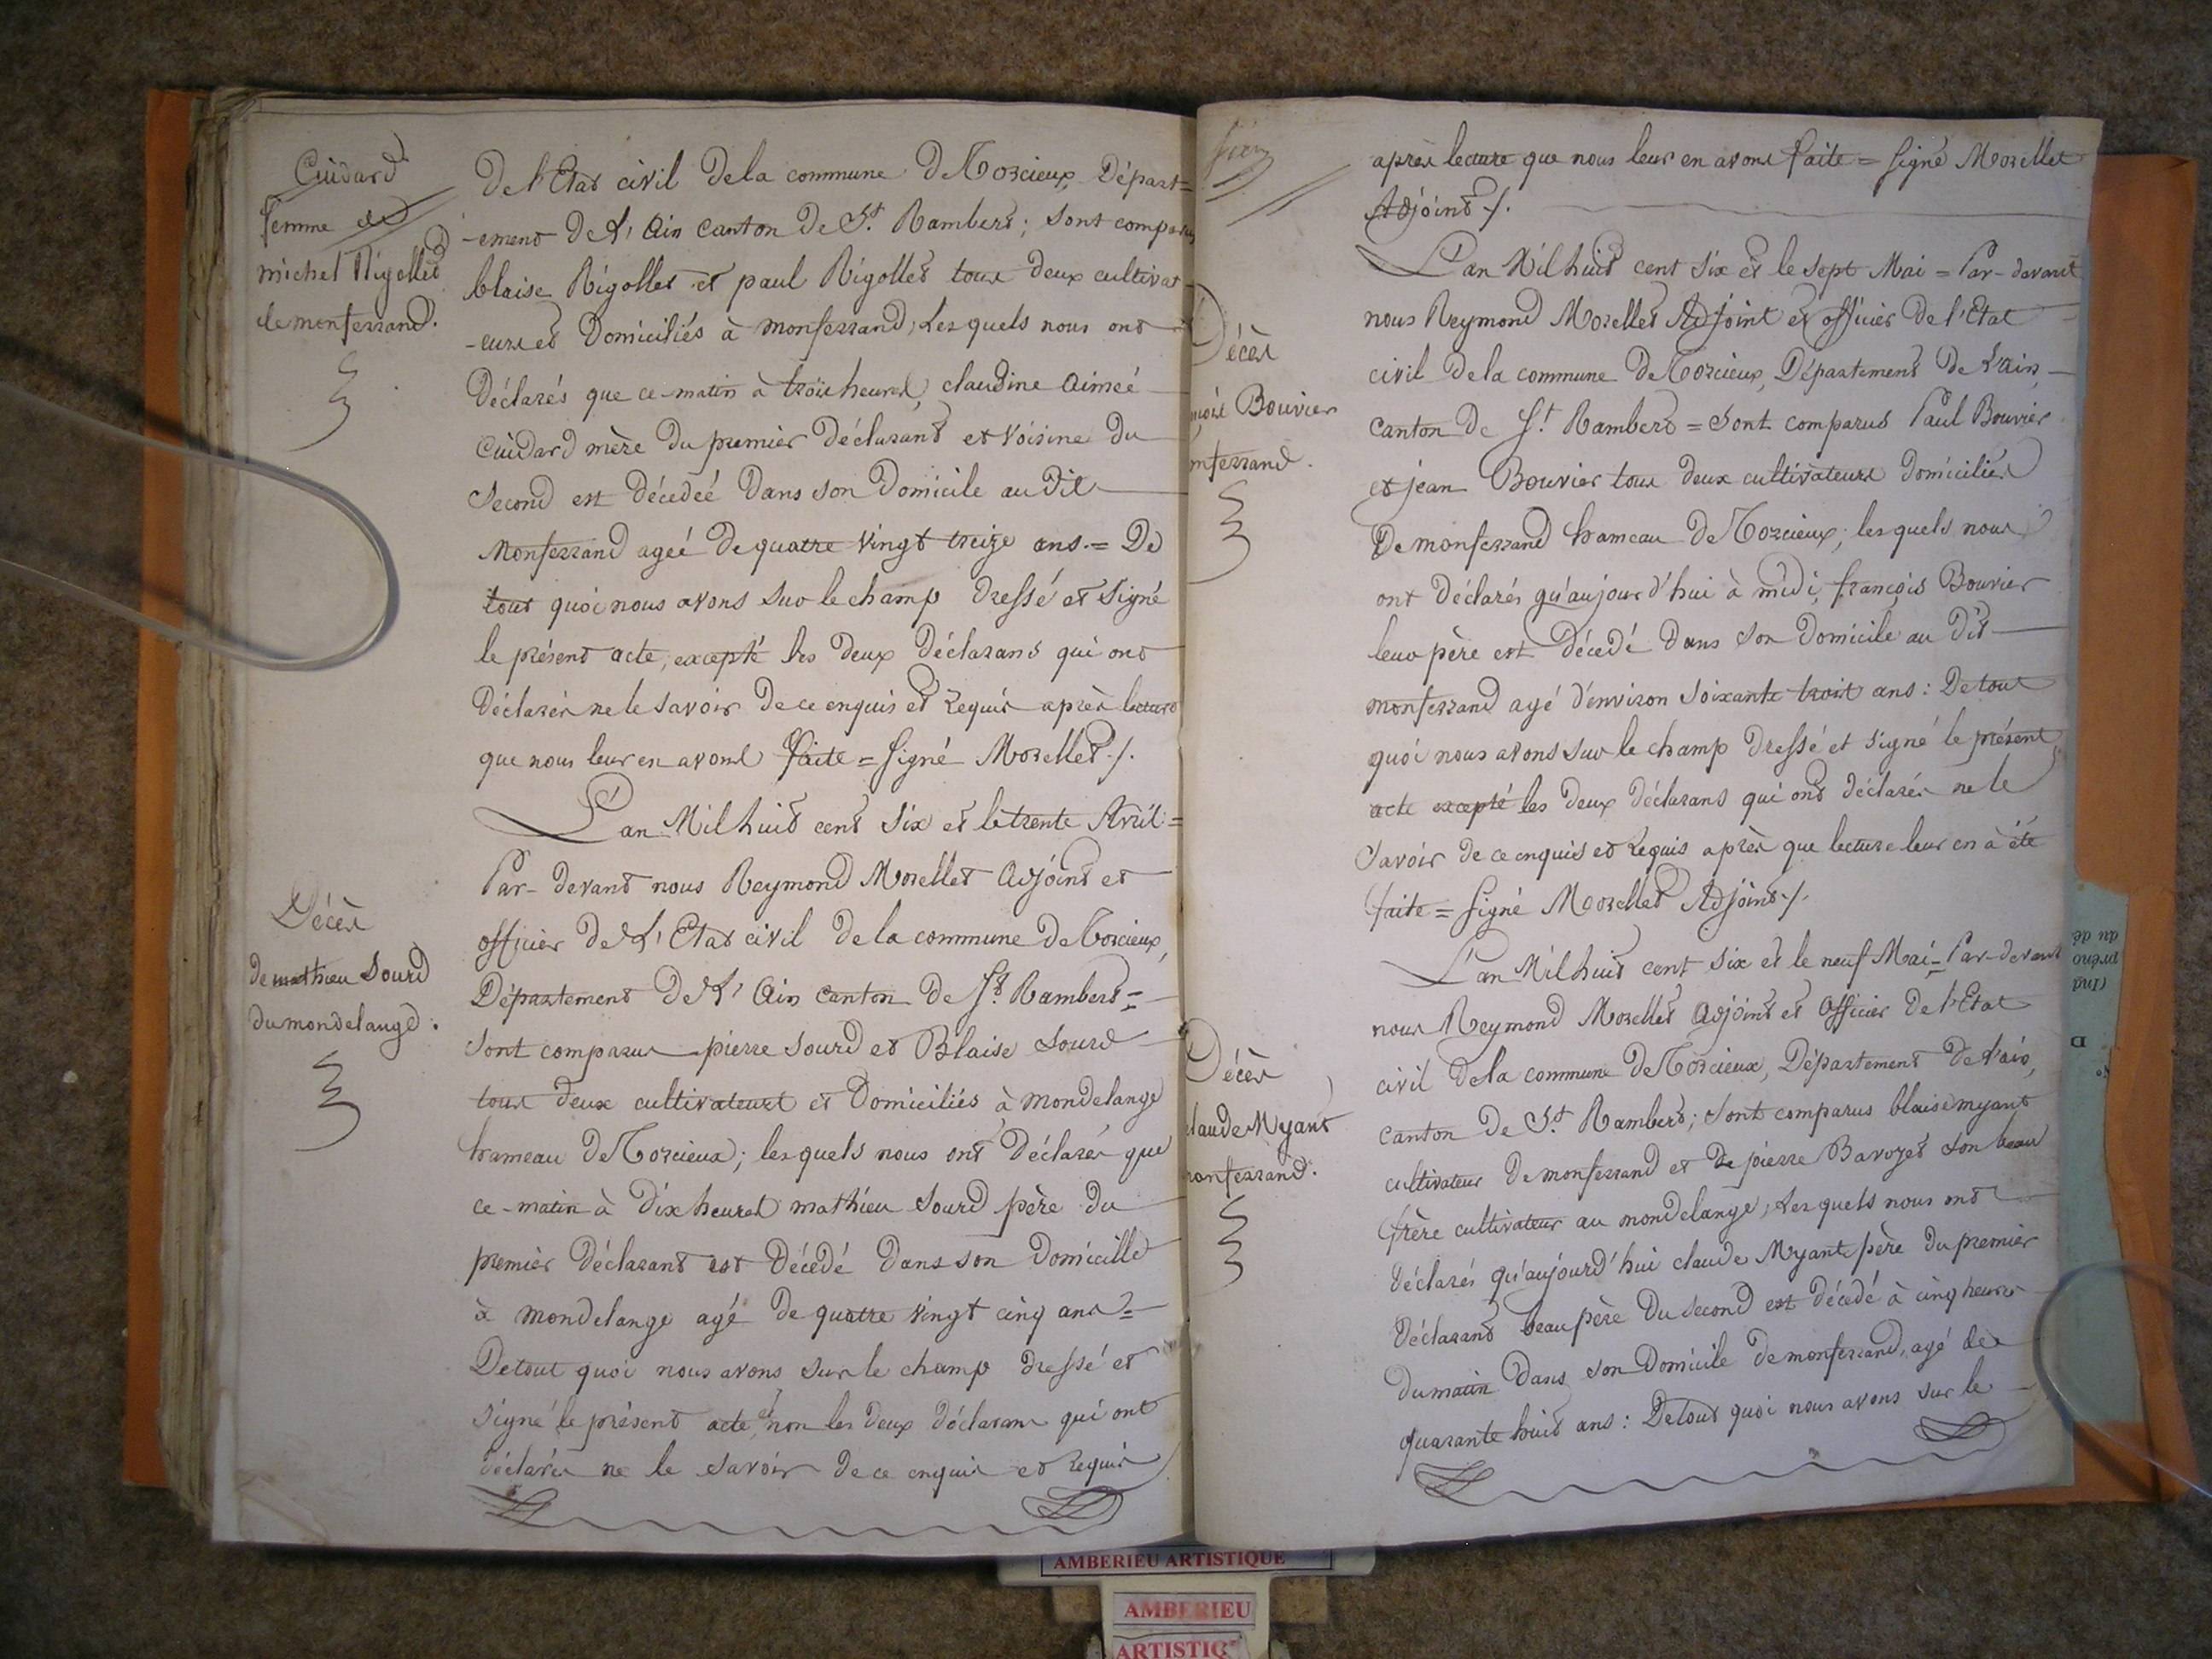 Cuidard
femme de
michel Rigollet
de monferrand.
De l'Etat civil dela commune De Torcieux Départ=
-ement De L'Ain Canton De St. Rambert; sont comparus
blaise Rigollet et paul Rigollet tous deux cultivat
-eurs et Domiciliés à monferrand; Les quels nous ont
Déclarés que ce matin à trois heures, claudine Aimeé
Cuidard mère Du premier Déclarant et Voisine du
Second est Décedeé Dans son Domicile au Dit
Monferrand ageé de quatre Vingt treize ans. = De
tout quoi nous avons sur le champ Dressé et Signé
le présent acte, excepté les Deux Déclarans qui ont
Déclarés ne le savoir De ce enquis et Requis après lecture
que nous leur en avons faite = Signé Morellet ./.
L'an Mil huit cent Six et le trente Avril =
Par-devant nous Reymond Morellet Adjoint et
officier De L'Etat civil de la commune De Torcieux,
Département De L'Ain Canton De St. Rambert =
Sont comparus pierre Sourd et Blaise Sourd
tous deux cultivateurs et Domiciliés à mondelange
hameau De Torcieux; les quels nous ont Déclarés que
ce-matin à Dix heures mathieu Sourd père du
premier Déclarant est Décédé Dans son Domicille
à mondelange agé de quatre vingt cinq ans =
Detout quoi nous avons sur le champ dressé et
signé le présent acte, et non les deux déclarans qui ont
déclarés ne le savoir de ce enquis et requis
Décès
de mathieu Sourd
du mondelange.
après lecture que nous leur en avons faite = signé Morellet
Adjoint ./.
L'an Mil huit cent Six et le sept Mai = Par-devant
nous Reymond Morellet Adjoint et officier De l'Etat
civil dela commune De Torcieux, Département De L'ain,
Canton De St. Rambert = Sont comparus Paul Bouvier
et jean Bouvier tous deux cultivateurs Domiciliés
De monferrand hameau De Torcieux; les quels nous
ont Déclarés qu'aujourd'hui à midi, françois Bouvier
leur père est Décédé Dans son Domicile au Dit
monferrand agé d'environ soixante trois ans: De tout
quoi nous avons sur le champ Dressé et signé le présent
acte excepté les Deux Déclarans qui ont déclarés ne le
savoir de ce enquis et Requis après que lecture leur en à été
faite = signé Morellet Adjoint ./.
L'an Mil huit cent Six et le neuf Mai = Par-devant
nous Reymond Morellet Adjoint et Officier De l'Etat
civil Dela commune De Torcieux, Département De L'ain,
canton De St. Rambert; Sont comparus blaise myant
cultivateur De monferrand et De pierre Bavozet son beau
frère cultivateur au mondelange; Les quels nous ont
Déclarés qu'aujourd'hui claude Myant père du premier
Déclarant beau père Du second est décédé à cinq heures
Dumatin Dans son Domicile De monferrand, agé de
quarante huit ans: De tout quoi nous avons sur le
Décès
nçois Bouvier
nferrand.
Décès
laude Myant
onferrand.
au dé
préno
(Ind
D
AMBERIEU ARTISTIQUE
AMBERIEU
ARTISTIQ